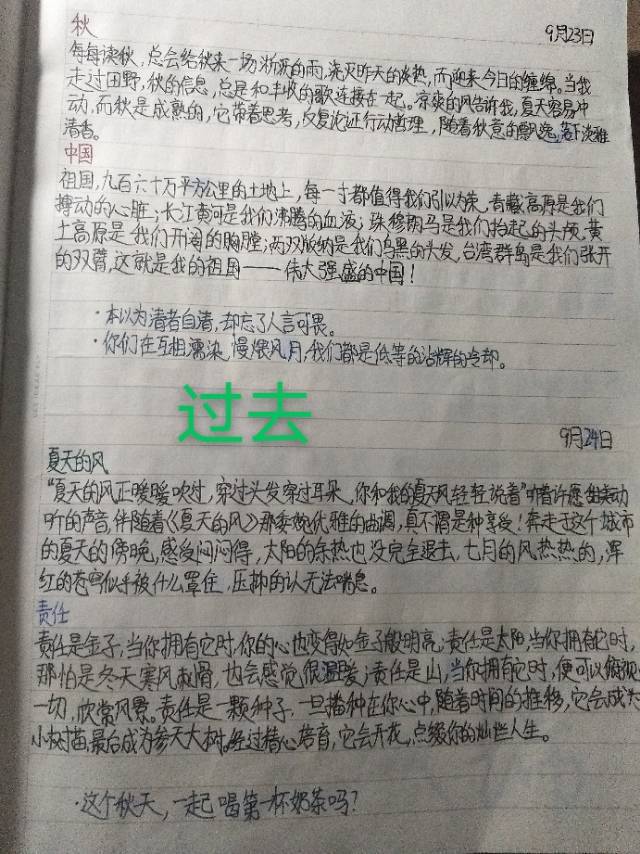 秋
9月23日
每每读秋，总会给秋来一场淅沥的雨，浇灭昨天的炎热，而迎来今日的缠绵。当我
走过田野，秋的信息，总是和丰收的歌连接在一起。凉爽的风告诉我，夏天容易冲
动，而秋是成熟的，它带着思考，反复论证行动哲理，随着秋意的飘逸，落下淡雅
清香。
中国
祖国，九百六十万平方公里的土地上，每一寸都值得我们引以为荣，青藏高原是我们
搏动的心脏；长江黄河是我们沸腾的血液；珠穆朗马是我们抬起的头颅，黄
土高原是我们开阔的胸膛；西双版纳是我们乌黑的头发，台湾群岛是我们张开
的双臂，这就是我的祖国——伟大强盛的中国！
·本以为清者自清，却忘了人言可畏。
·你们在互相濡染，慢煨风月，我们都是低等的沾辉的冷却。
过去
9月24日
夏天的风
“夏天的风正暖暖吹过，穿过头发穿过耳朵，你和我的夏天风轻轻说着”听着许愿动
听的声音，伴随着《夏天的风》那委婉优雅的曲调，真不谓是种享受！奔走于这个城市
的夏天的傍晚，感受闷闷得，太阳的余热也没完全退去，七月的风热热的，浑
红的苍穹似乎被什么罩住，压抑的认无法喘息。
责任
责任是金子，当你拥有它时，你的心也变得如金子般明亮；责任是太阳，当你拥有它时，
那怕是冬天寒风刺骨，也会感觉很温暖；责任是山，当你拥有它时，便可以俯视
一切，欣常风景。责任是一颗种子，一旦播种在你心中，随着时间的推移，它会成为
小树苗，最后成为参天大树。经过精心培育，它会开花，点缀你的灿烂人生。
·这个秋天，一起喝第一杯奶茶吗？